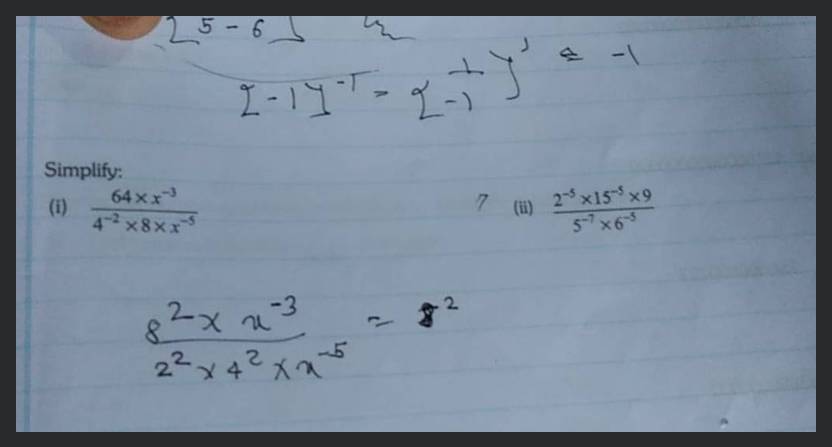 [5-6]
{-1}⁻¹ = {1/-1}¹ = -1
Simplify:
(i) 64×x⁻³ / 4⁻²×8×x⁻⁵
7 (ii) 2⁻⁵×15⁻⁵×9 / 5⁻⁷×6⁻⁵
8² × x⁻³ / 2² × 4² × x⁻⁵ = 8²